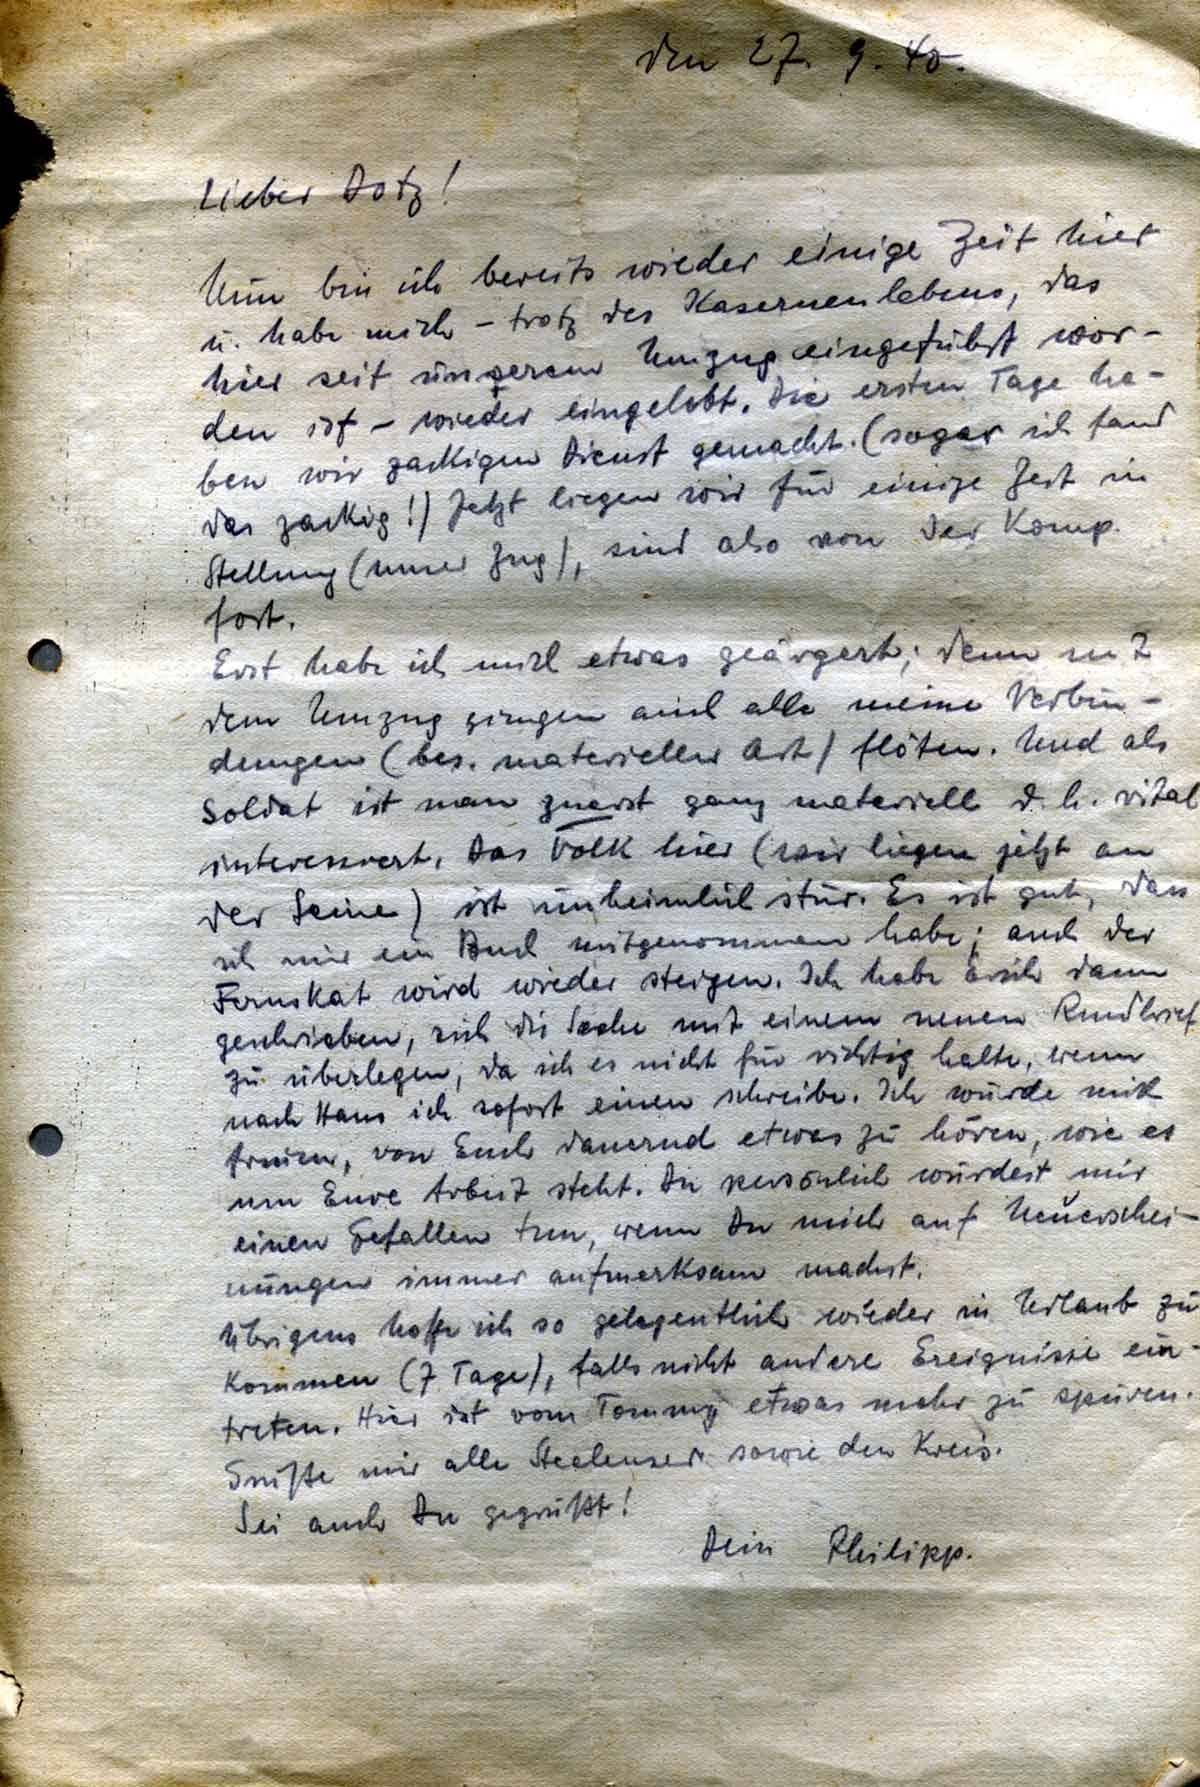 den 27. 9. 40.
Lieber Dotz!
Nun bin ich bereits wieder einige Zeit hier
u. habe mich – trotz des Kasernenlebens, das
hier seit unserem Umzug eingeführt wor-
den ist – wieder eingelebt. Die ersten Tage ha-
ben wir zackigen Dienst gemacht. (sogar ich fand
das zackig!) Jetzt liegen wir für einige Zeit in
Stellung (unser Zug), sind also von der Komp.
fort.
Erst habe ich mich etwas geärgert; denn mit
dem Umzug gingen auch alle meine Verbin-
dungen (bes. materieller Art) flöten. Und als
Soldat ist man zuerst ganz materiell d.h. vital
interessiert. Das Volk hier (wir liegen jetzt an
der Seine) ist unheimlich stur. Es ist gut, dass
ich mir ein Buch mitgenommen habe; auch der
wird wieder steigen. Ich habe Erich dann
geschrieben, sich die Sache mit einem neuen Rundbrief
zu überlegen, da ich es nicht für richtig halte, wenn
nach Haus ich sofort einen schreibe. Ich würde mich
freuen, von Euch dauernd etwas zu hören, wie es
um Eure Arbeit steht. Du persönlich würdest mir
einen Gefallen tun, wenn Du mich auf Neuerschei-
nungen immer aufmerksam machst.
Übrigens hoffe ich so gelegentlich wieder in Urlaub zu
kommen (7 Tage), falls nicht andere Ereignisse ein-
treten. Hier ist vom Tommy etwas mehr zu spüren.
Grüße mir alle Steelenser sowie den Kreis.
Sei auch Du gegrüßt!
Dein Philipp.